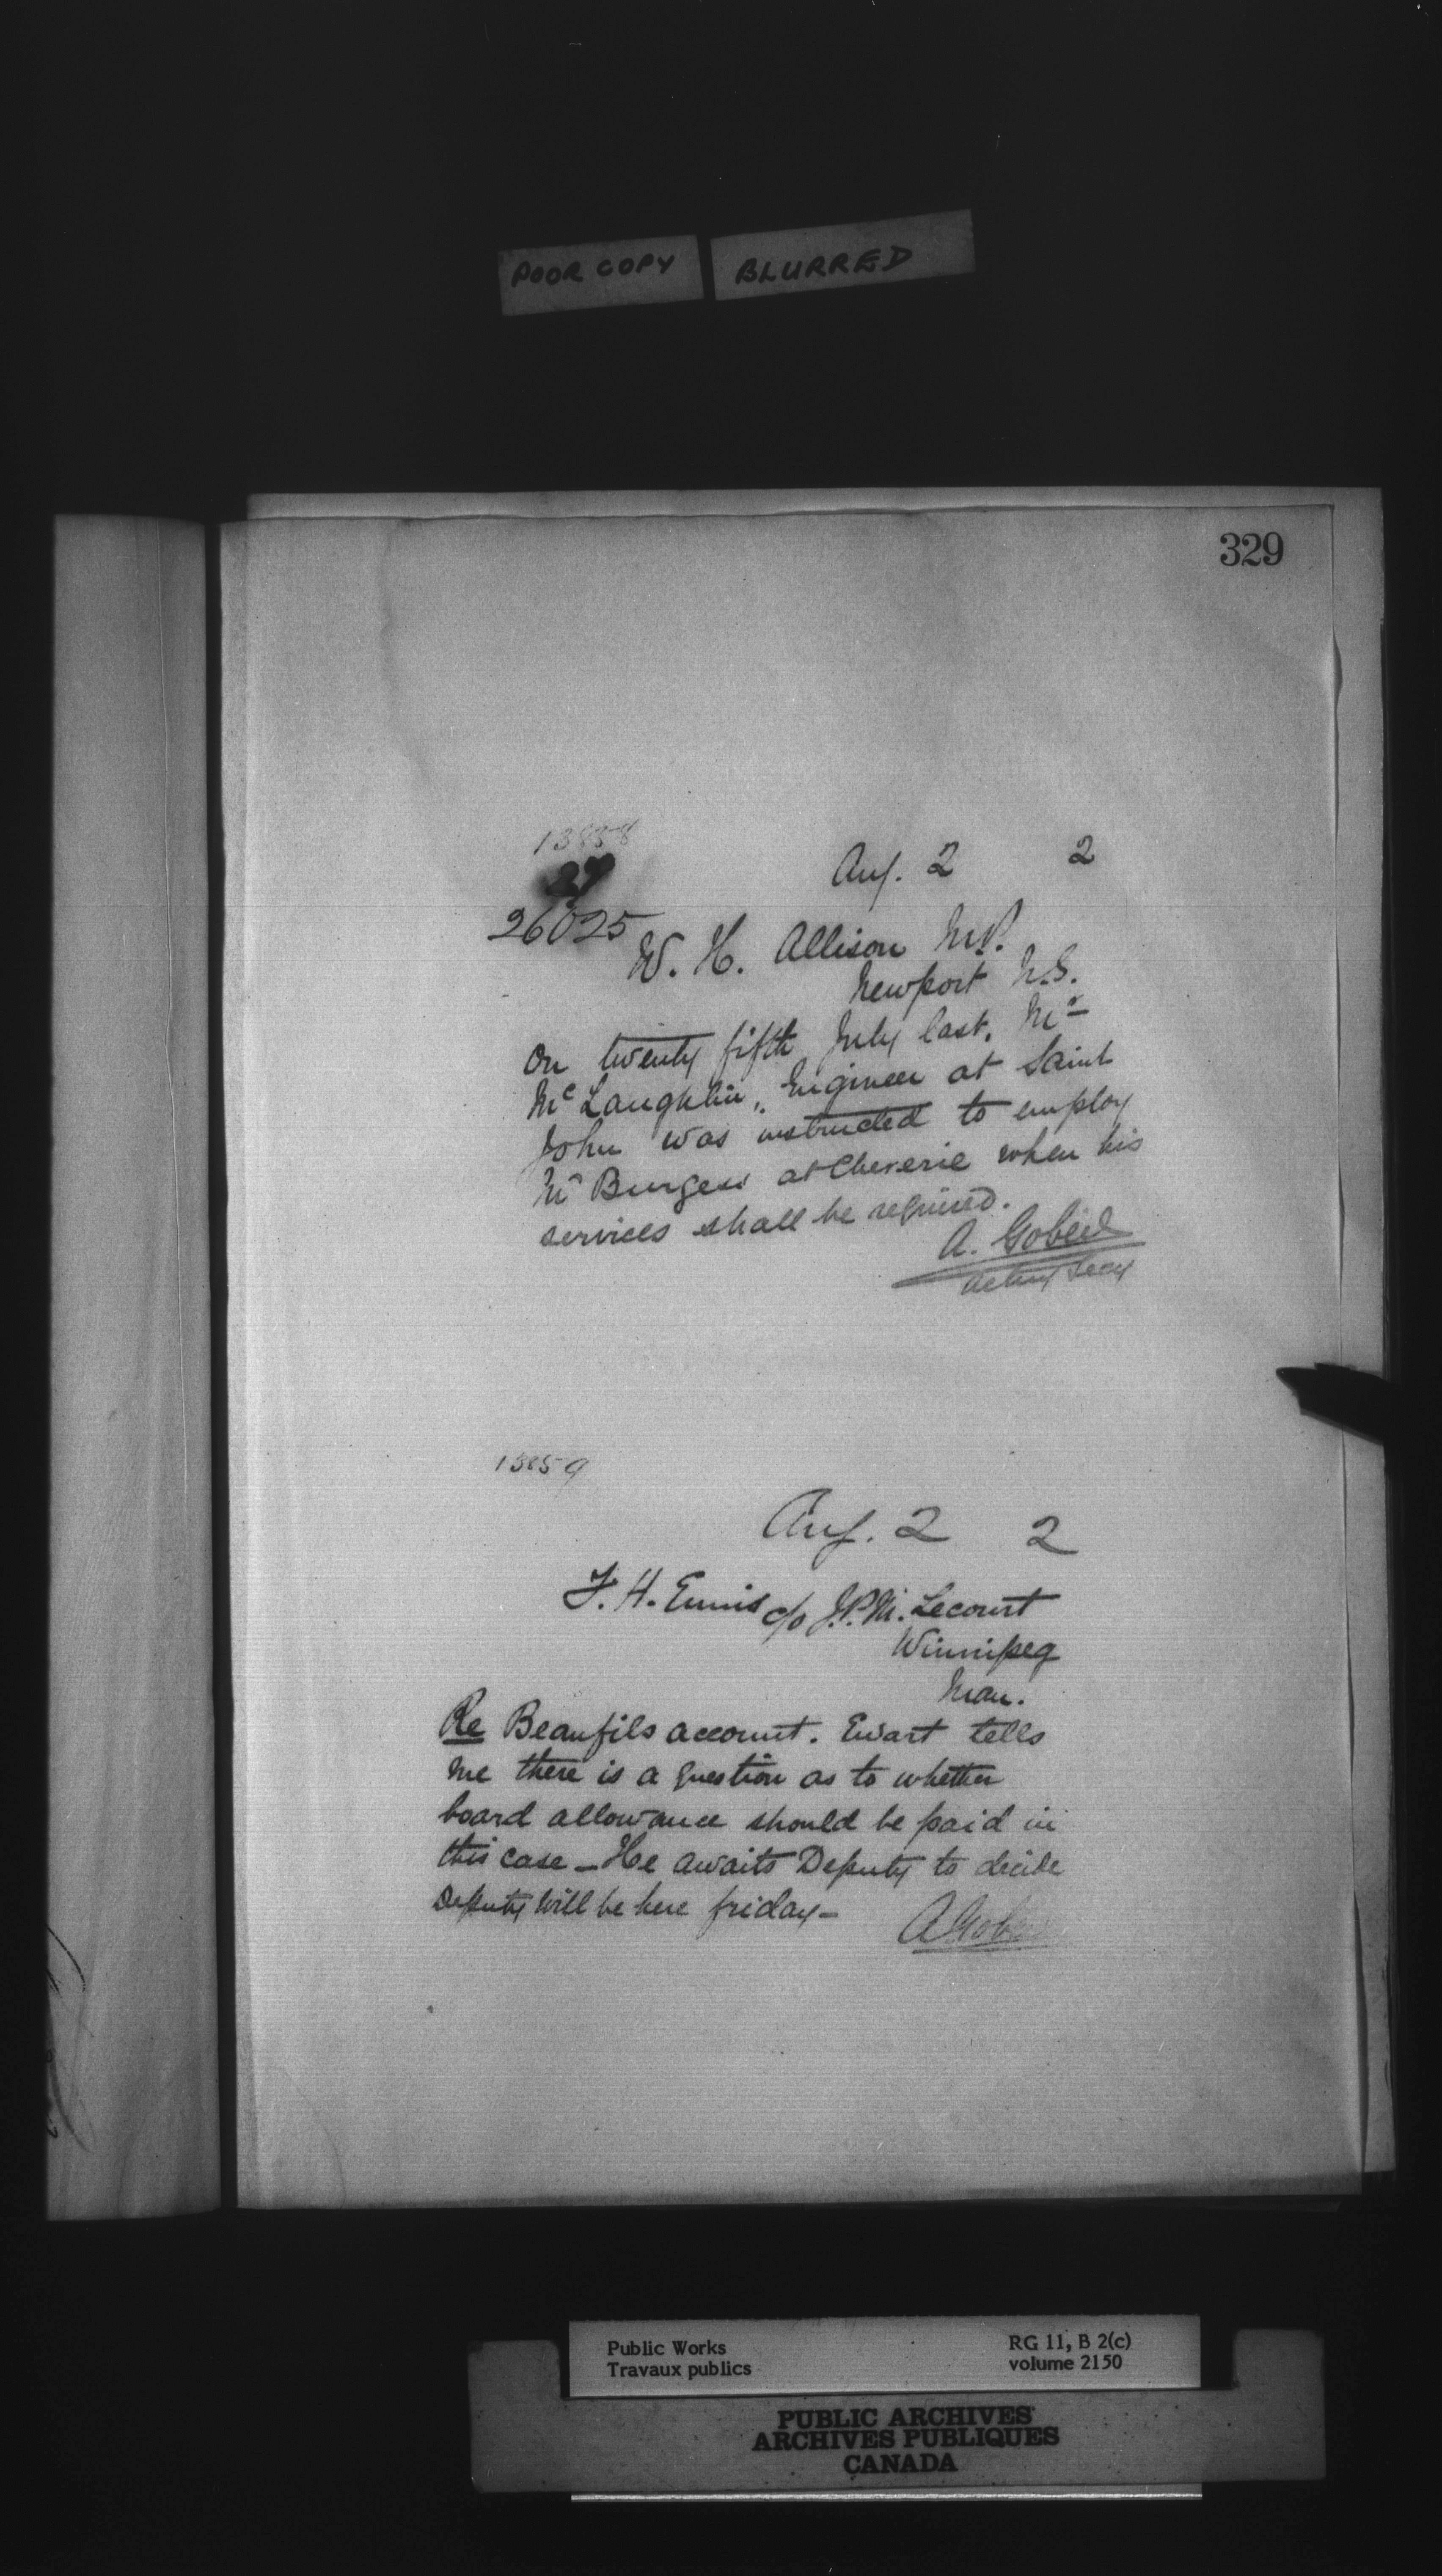 POOR COPY BLURRED
329
13858
Aug. 2 2
26025
W. H. Allison M.P.
Newport N.S.
On twenty fifth July last, Mr
McLaughlin, Engineer at Saint
John was instructed to employ
Mr Burgess at Cheverie when his
services shall be required.
A. Gobeil
Acting Secy
13859
Aug. 2 2
F. H. Ennis c/o J.P.M. Lecourt
Winnipeg
Man.
Re Beaufils account. Ewart tells
me there is a question as to whether
board allowance should be paid in
this case - He awaits Deputy to decide
Deputy will be here friday -
A Gobeil
Public Works RG 11, B 2(c)
Travaux publics volume 2150
PUBLIC ARCHIVES
ARCHIVES PUBLIQUES
CANADA